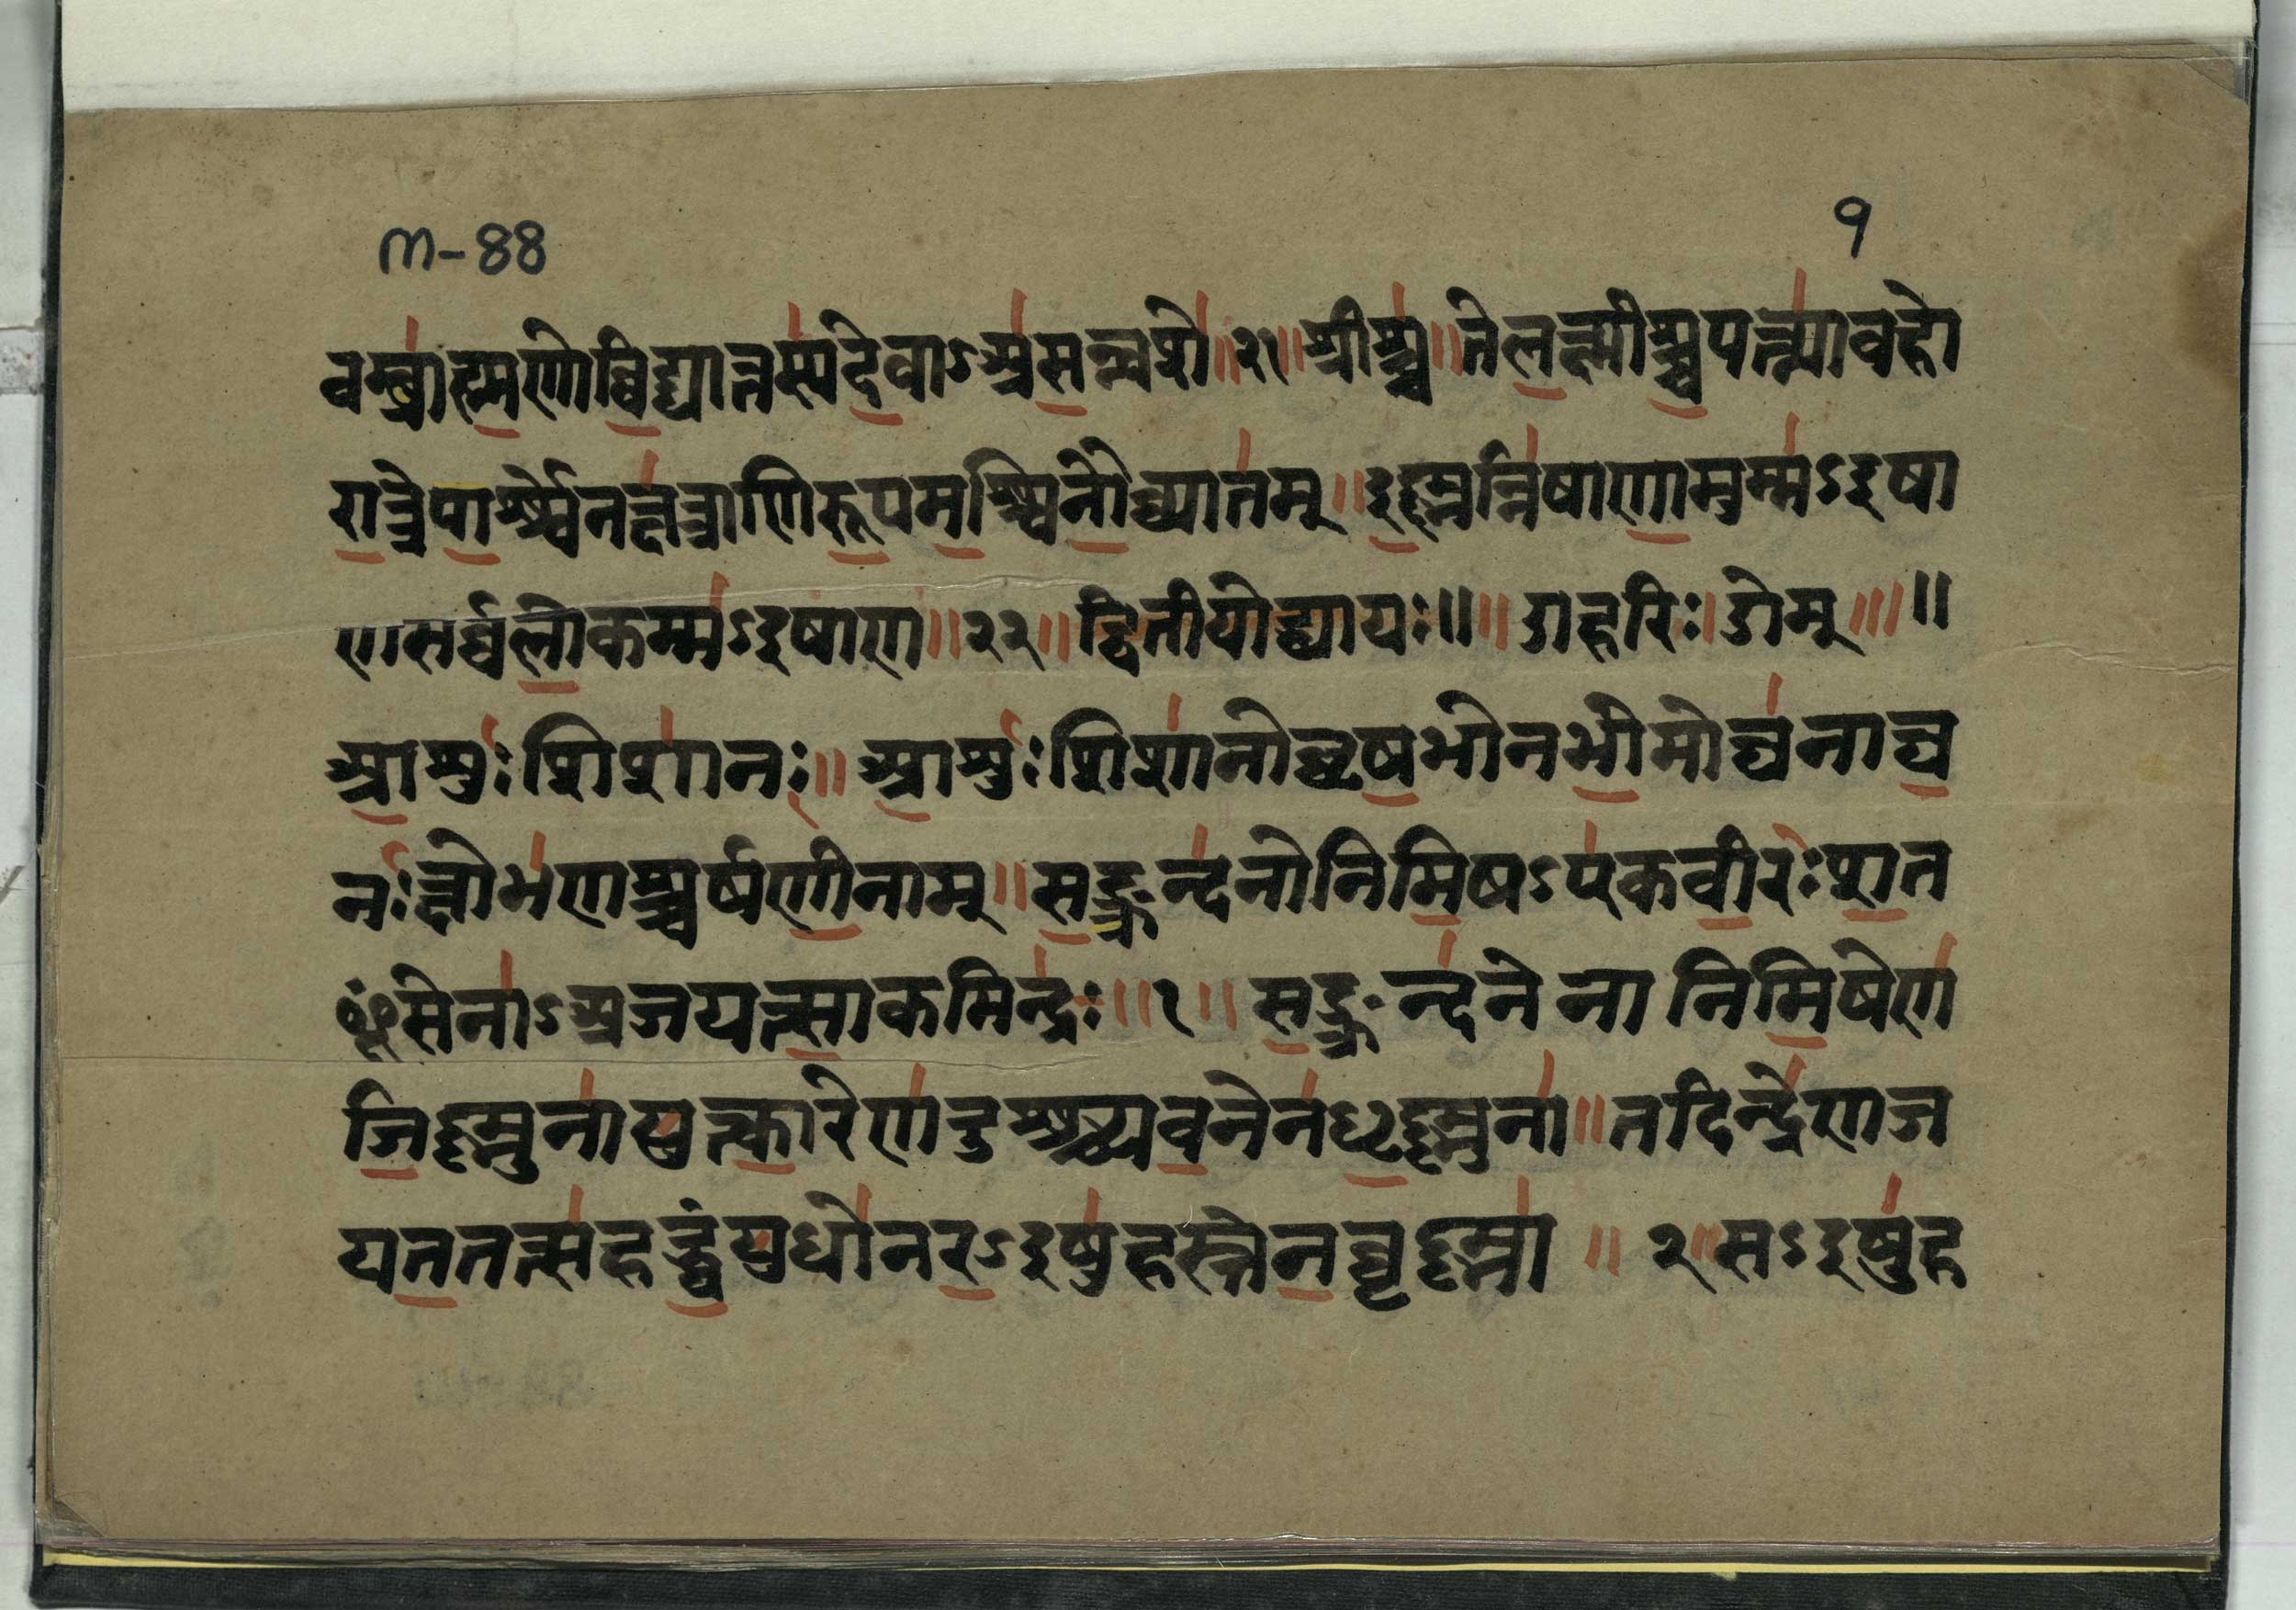 m-88
१
वम्ब्रा॑ह्म॒णोव्वि॒द्यात्तस्य॑दे॒वाऽअ॑स॒न्न्वशे॑॥२१॥श्रीश्च॑॥तेल॒क्ष्मीश्च॒पत्न्या॑वहो
रा॒त्रेपा॒र्श्श्वेनक्ष॑त्राणिरू॒पम॒श्श्विनौ॒व्यात्त॑म्॥इ॒ष्ष्णन्नि॑षाणा॒मुम्म॑ऽइषा
णसर्व्वलो॒कम्म॑ऽइषाण॥२२॥द्वितीयोद्ध्यायः॥॥ॐहरिः।ॐम्॥॥
आ॒शुः॑शिशा॑नः॥आ॒शुः॑शिशा॑नोव्वृष॒भोनभी॒मोघ॑नाघ॒
नः॑क्षोभ॑णश्चर्षणी॒नाम्॥स॒ङ्क्रन्द॑नोनिमि॒षऽए॑कवी॒रःश॒त
ᳪसेना॑ऽअजयत्सा॒कमिन्द्रः॑॥१॥स॒ङ्क्रन्द॑नेनानिमि॒षेण॑
जि॒ष्ष्णुना॑युत्का॒रेण॑दुश्श्च्यव॒नेन॑धृ॒ष्ष्णुना॑॥तदिन्द्रे॑णज
यत॒तत्स॑हद्ध्वं॒युधो॑नर॒ऽइषु॑हस्तेन॒व्वृष्ष्णा॑॥२॥सऽइषु॑ह